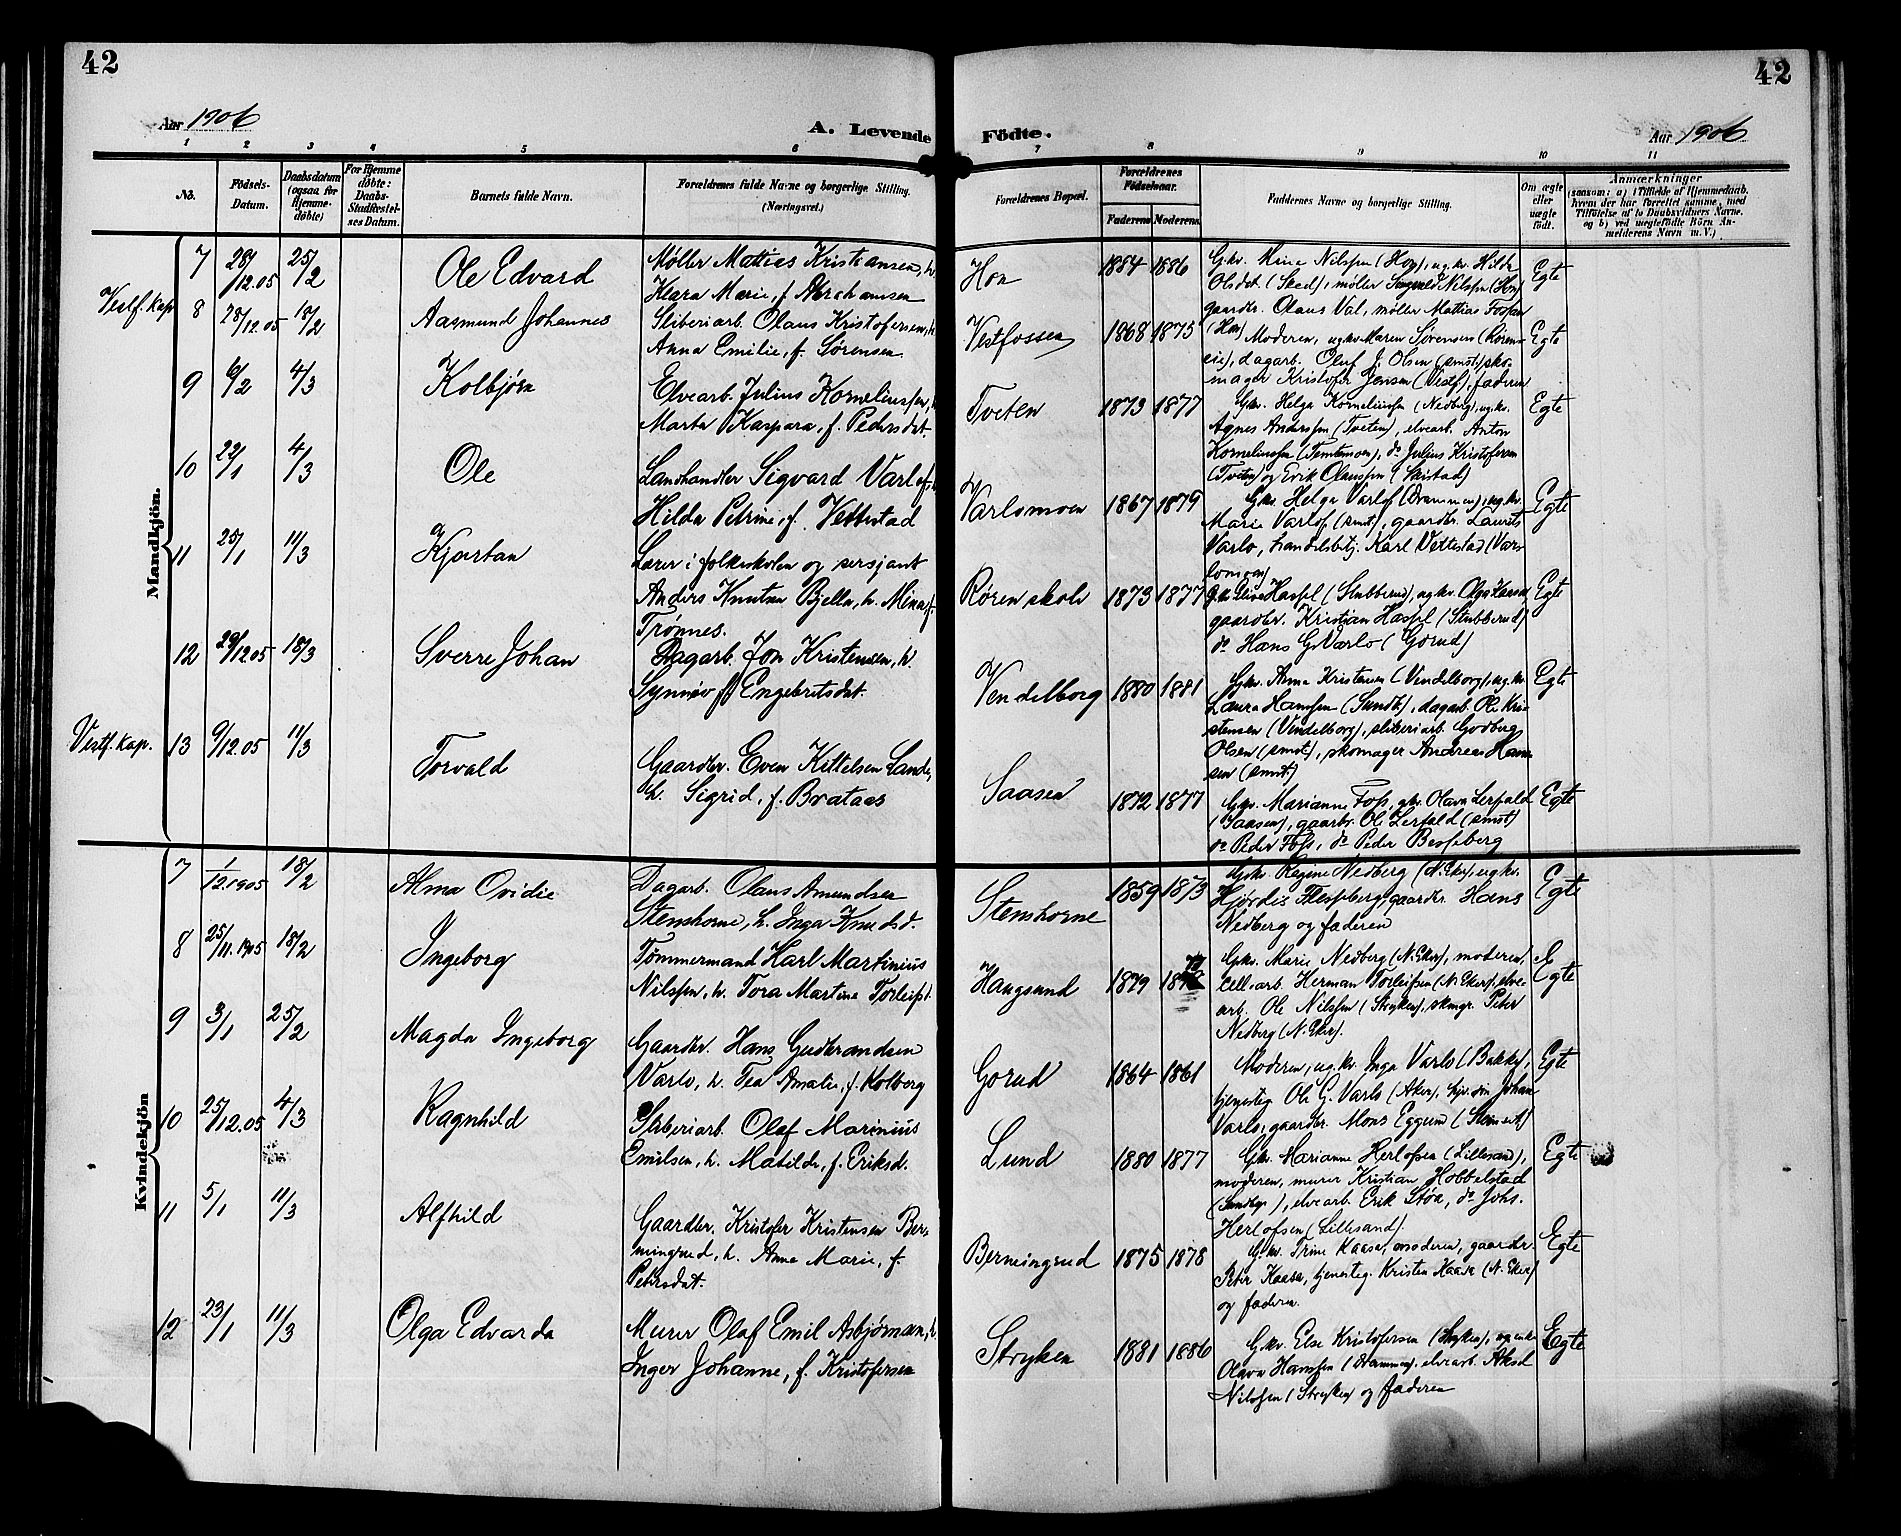 42
42
Aar 1906
A. Levende Födte.
Aar 1906
1 2 3 4 5 6 7 8 9 10 11
No.
Födsels-Datum.
Daabsdatum (ogsaa for Hjemmedøbte)
For Hjemmedøbte: Daabs-Stadfæstelses Datum.
Barnets fulde Navn.
Forældrenes fulde Navne og borgerlige Stilling. (Næringsvei.)
Forældrenes Bopæl.
Forældrenes Födselsaar.
Faderens Moderens
Faddernes Navne og borgerlige Stilling.
Om ægte eller uægte født.
Anmærkninger
(saasom: a) i Tilfælde af Hjemmedaab, hvem der har forrettet samme, med Tilføielse af to Daabsvidners Navne, og b) ved uægtefødte Börn Anmelderens Navn m.V.)
Mandkjön.
7 28/12.05 25/2 Ole Edvard
Møller Matias Kristiansen, h.
Klara Marie, f. Abrahamsen
Hon 1884 1886
Gkv. Mina Nilssen (Hon), ug.kv. Hilda
Olsdat. (Sted), møller Nilssen (Hon)
gaardbr. Olaus Val, møller Mathias Fossan
(Hon)
Egte
Vestf. kap. 8 28/12.05 18/2 Aasmund Johannes
Sliberiarb. Olaus Kristofersen, h.
Anna Emilie, f. Sørensen
Vestfossen 1868 1875
Moderen, ug.kv. Maren Sørensen
dagarb. Oluf J. Olsen (smst), sko-
mager Kristofer Jensen (Vestf.), faderen
Egte
9 6/2 4/3 Kolbjørn
Elvearb. Julius Korneliussen, h.
Marta Kaspara, f. Pedersdat.
Tveten 1873 1877
Gkv. Helga Korneliussen (Nedberg), ug.kv.
Agnes Anderssen (Tveten), elvearb. Anton
Korneliussen, do Julius Kristofersen
(Tveten) og Erik Olaussen
Egte
10 22/1 4/3 Ole
Landhandler Sigvard Varlof, h.
Hilda Petrine, f. Vettestad
Varlomoen 1867 1879
Gkv. Helga Varlof (Drammen), ug.kv.
Marie Varlof (smst), gaardbr. Laurits
Varlo, handelsbetj. Karl Vettestad (Var-
lomoen)
Egte
11 25/1 11/3 Kjartan
Lærer i folkeskolen og sersjant
Anders Knutsen Bjella, h. Mina, f.
Trønnes.
Røren skole 1873 1877
Hassel (Stubberud), ug.kv. Olga
gaardbr. Kristian Hassel (Stubberud)
do Hans G. Varlo (Gorud)
Egte
12 29/12.05 18/3 Sverre Johan
Dagarb. Jon Kristensen, h.
Synnøv, f. Engebretsdat.
Vendelborg 1880 1881
Gkv. Anna Kristensen (Vindelborg), ug.kv.
Laura Hanssen (Sundt), dagarb. Ole Kri-
stensen (Vindelborg), sliberiarb. Godberg
Olsen (smst), skomager Andreas Han-
sen (smst)
Egte
Vestf. kap. 13 9/12.05 11/3 Torvald
Gaardbr. Even Kittelsen Lande,
h. Sigrid, f. Brataas
Saasen 1872 1877
Gkv. Marianne Foss, gkv. Olava Lerfald
(Saasen), gaardbr. Ole Lerfald (smst)
do Peder Foss, do Peder Besseberg
Egte
Kvindekjön
7 1/12.1905 18/2 Alma Ovidie
Dagarb. Olaus Amundsen
Stenshorne, h. Inga Knudsd.
Stenshorne 1859 1873
Gkv. Regine Nedberg (N. Eker), ug.kv.
Hjørdis Flesseberg, gaardbr. Hans
Nedberg og faderen
Egte
8 25/11.1905 18/2 Ingeborg
Tømmermand Karl Martinius
Nilssen, h. Tora Martine Torleifsd.
Haugsund 1879
Gkv. Marie Nedberg (N. Eker), moderen,
cell.arb. Herman Torleifssen (N. Eker), elve-
arb. Ole Nilssen (Stryken), skmgr. Peter
Nedberg (N. Eker).
Egte
9 3/1 25/2 Magda Ingeborg
Gaardbr. Hans Gudbrandsen
Varlo, h. Tea Amalie, f. Kolberg
Gorud 1864 1861
Moderen, ug.kv. Inga Varlo (Bakke),
tjenesteg. Ole G. Varlo (Aker), Johan
Varlo, gaardbr. Mons Eggum
Egte
10 25/12.05 4/3 Ragnhild
Sliberiarb. Olaf Marinius
Emilsen, h. Matilde, f. Eriksd.
Lund 1880 1877
Gkv. Marianne Herlofsen (Lillesand),
moderen, murer Kristian Hobbelstad
elvearb. Erik Støa, do Johs.
Herlofsen (Lillesand).
Egte
11 5/1 11/3 Alfhild
Gaardbr. Kristofer Kristensen Ber-
mingrud, h. Anne Marie, f.
Petersdat.
Bermingrud 1875 1878
Gkv. Trine Kaasa, moderen, gaardbr.
Peter Kaasa, tjenesteg. Kristen Kaasa (N. Eker)
og faderen.
Egte
12 23/1 11/3 Olga Edvarda
Murer Olaf Emil Asbjørnsen, h.
Inger Johanne, f. Kristofersen
Stryken 1881 1886
Gkv. Else Kristofersen (Stryken), og enke
Olava Hanssen (Drammen), elvearb. Aksel
Nilssen (Stryken) og faderen
Egte